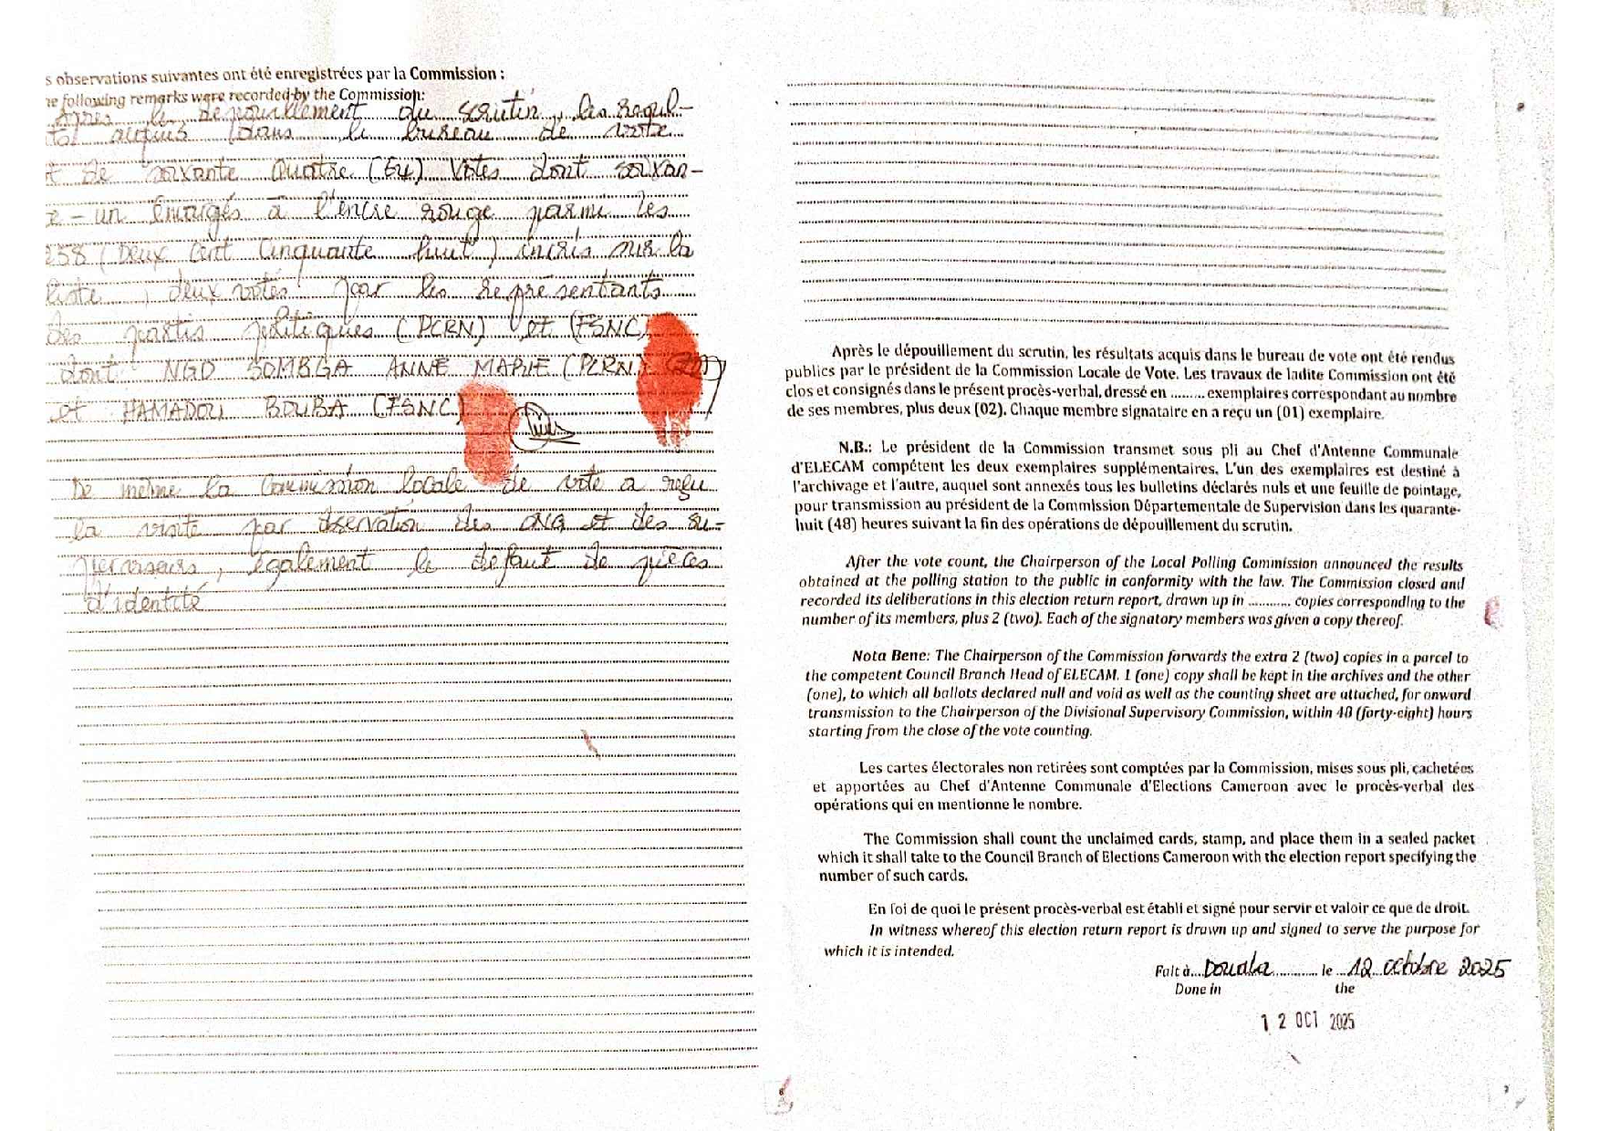 s observations suivantes ont été enregistrées par la Commission :
he following remarks were recorded by the Commission:
Après le dépouillement du scrutin, les resul-
ts acquis dans le bureau de vote
t de soixante quatre (64) votes dont soixan-
e-un émargés à l'encre rouge parmi les
258 (Deux cent cinquante huit) inscris sur la
liste, deux votés par les représentants
des partis politiques (PCRN) et (FSNC)
dont NGO SOMBGA ANNE MARIE (PCRN)
et HAMADOU BOUBA (FSNC)
De même la Commission locale de vote a reçu
la visite par observation des ONG et des su-
perviseurs, également le défaut de pièces
d'identité
Après le dépouillement du scrutin, les résultats acquis dans le bureau de vote ont été rendus
publics par le président de la Commission Locale de Vote. Les travaux de ladite Commission ont été
clos et consignés dans le présent procès-verbal, dressé en ......... exemplaires correspondant au nombre
de ses membres, plus deux (02). Chaque membre signataire en a reçu un (01) exemplaire.
N.B.: Le président de la Commission transmet sous pli au Chef d'Antenne Communale
d'ELECAM compétent les deux exemplaires supplémentaires. L'un des exemplaires est destiné à
l'archivage et l'autre, auquel sont annexés tous les bulletins déclarés nuls et une feuille de pointage,
pour transmission au président de la Commission Départementale de Supervision dans les quarante-
huit (48) heures suivant la fin des opérations de dépouillement du scrutin.
After the vote count, the Chairperson of the Local Polling Commission announced the results
obtained at the polling station to the public in conformity with the law. The Commission closed and
recorded its deliberations in this election return report, drawn up in ........... copies corresponding to the
number of its members, plus 2 (two). Each of the signatory members was given a copy thereof.
Nota Bene: The Chairperson of the Commission forwards the extra 2 (two) copies in a parcel to
the competent Council Branch Head of ELECAM. 1 (one) copy shall be kept in the archives and the other
(one), to which all ballots declared null and void as well as the counting sheet are attached, for onward
transmission to the Chairperson of the Divisional Supervisory Commission, within 48 (forty-eight) hours
starting from the close of the vote counting.
Les cartes électorales non retirées sont comptées par la Commission, mises sous pli, cachetées
et apportées au Chef d'Antenne Communale d'Elections Cameroon avec le procès-verbal des
opérations qui en mentionne le nombre.
The Commission shall count the unclaimed cards, stamp, and place them in a sealed packet
which it shall take to the Council Branch of Elections Cameroon with the election report specifying the
number of such cards.
En foi de quoi le présent procès-verbal est établi et signé pour servir et valoir ce que de droit.
In witness whereof this election return report is drawn up and signed to serve the purpose for
which it is intended.
Fait à... Douala ........... le ... 12 octobre 2025
Done in the
12 OCT 2025